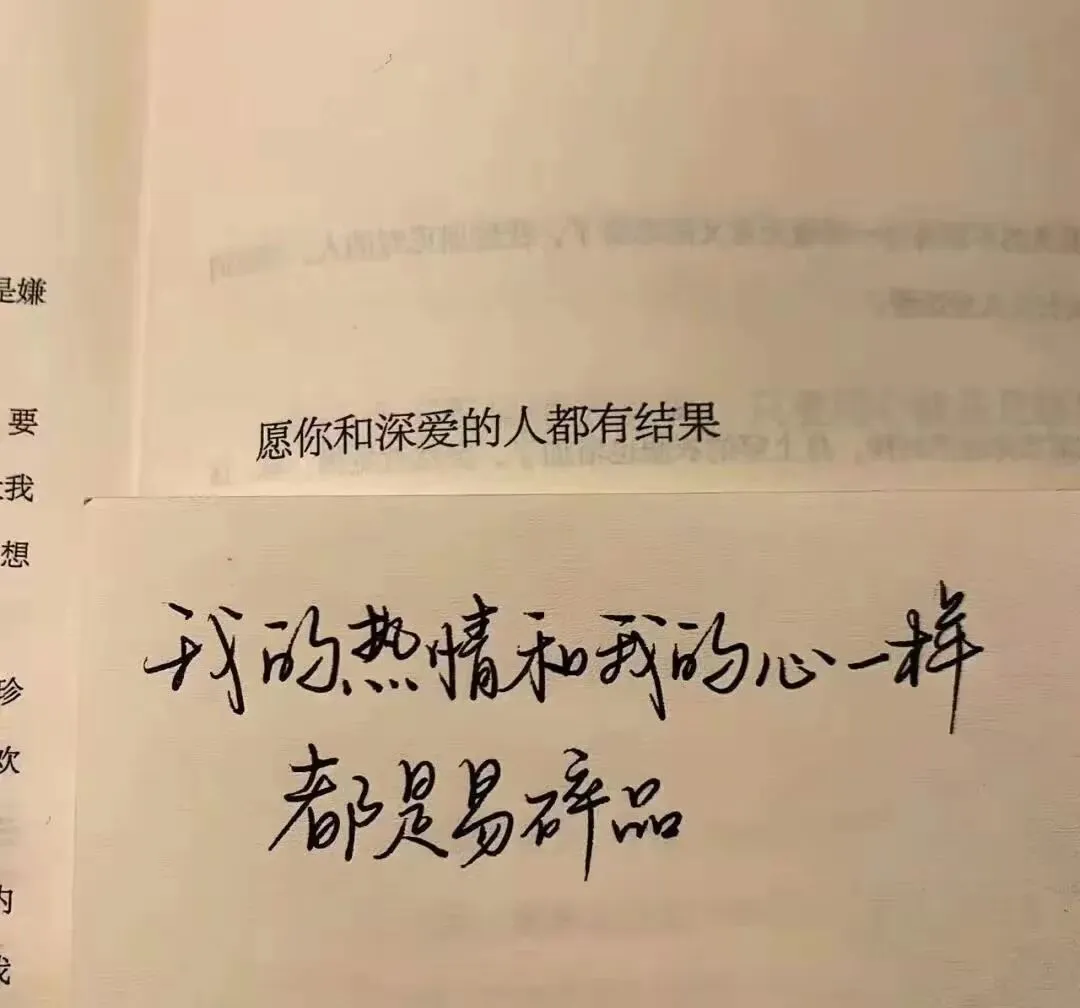 是嫌
要
我
想
珍
欢
内
我
愿你和深爱的人都有结果
我的热情和我的心一样
都是易碎品